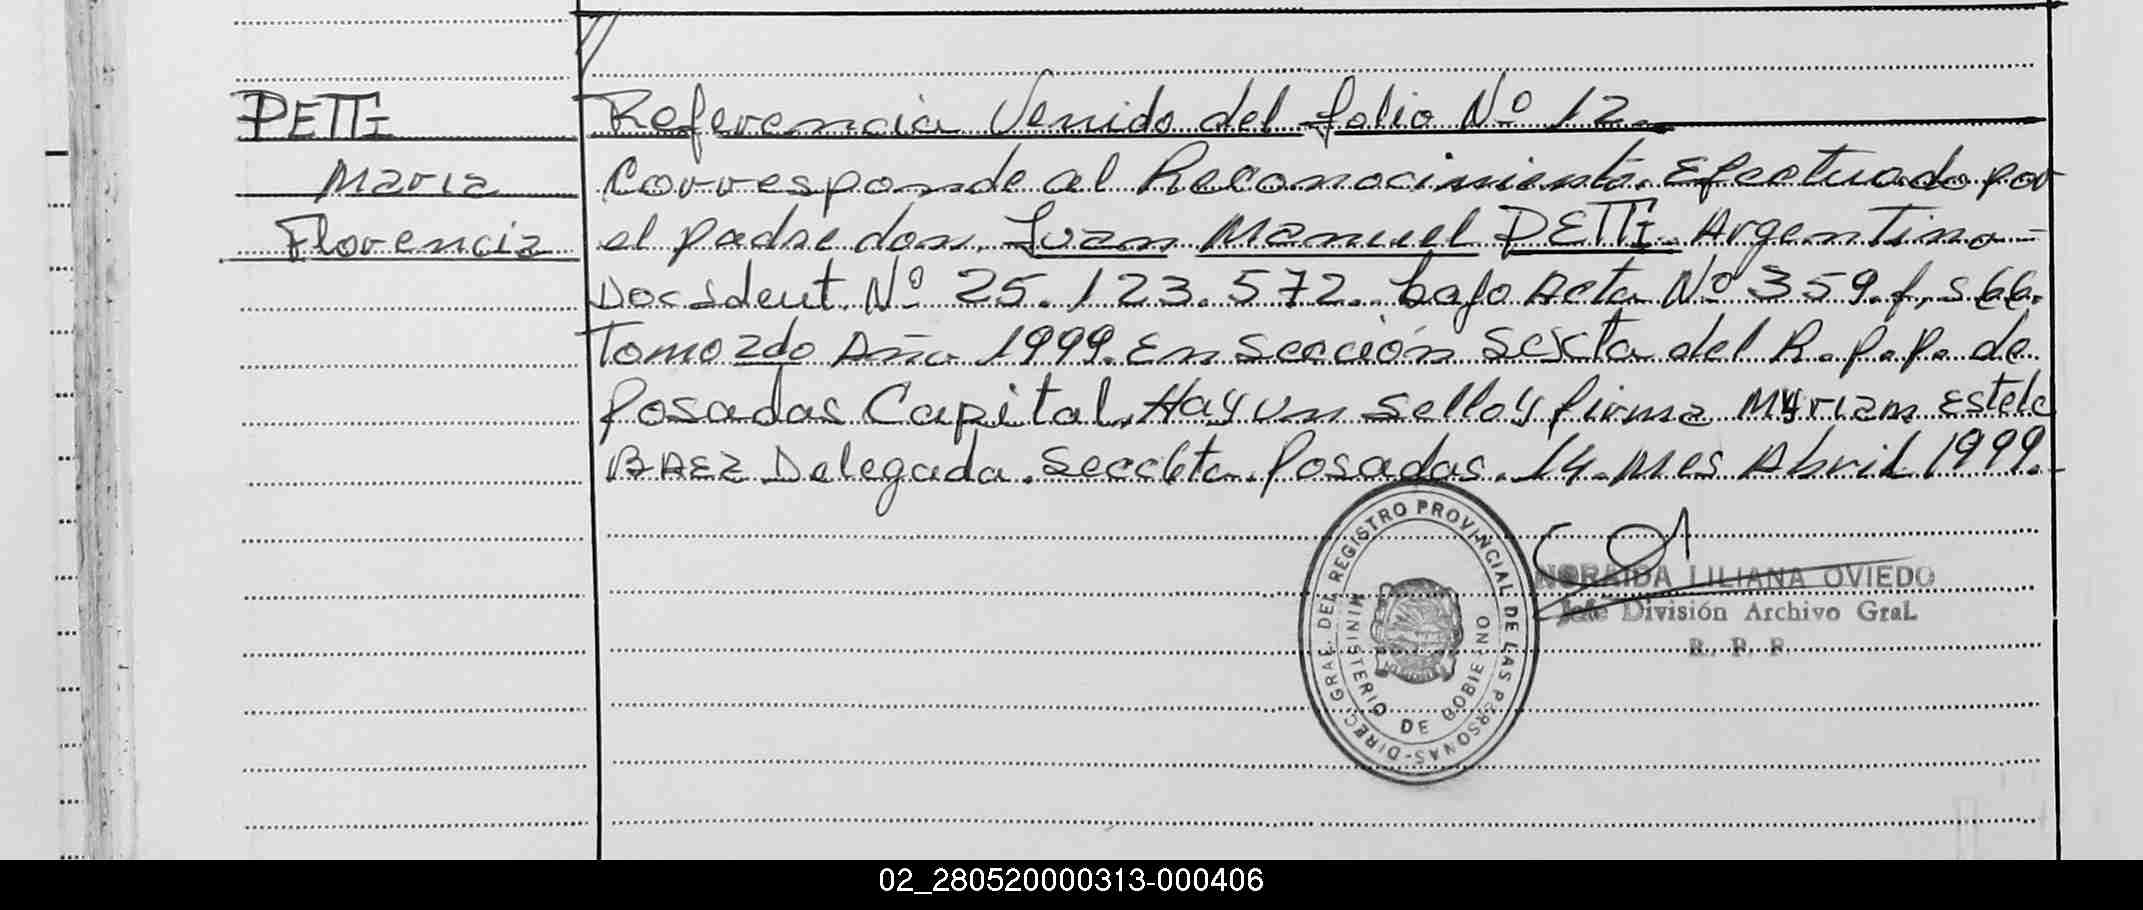 PETTI
Maria
Florencia
Referencia Venido del folio Nº 12.
Corresponde al Reconocimiento. Efectuado por
el padre don. Juan Manuel PETTI. Argentino-
Doc Ident. Nº 25.123.572. bajo Acta Nº 359. f. S 66.
Tomo 2do Año 1999. En Sección Sexta del R.P.P. de
Posadas Capital. Hay un Sello y firma Myriam Estela
BAEZ Delegada. Secc 6ta. Posadas. 14. Mes Abril 1999.-
DIREC. GRAL. DEL REGISTRO PROVINCIAL DE LAS PERSONAS-
MINISTERIO DE GOBIERNO
NORAIDA LILIANA OVIEDO
Jefe División Archivo Gral.
R. P. P.
02_280520000313-000406